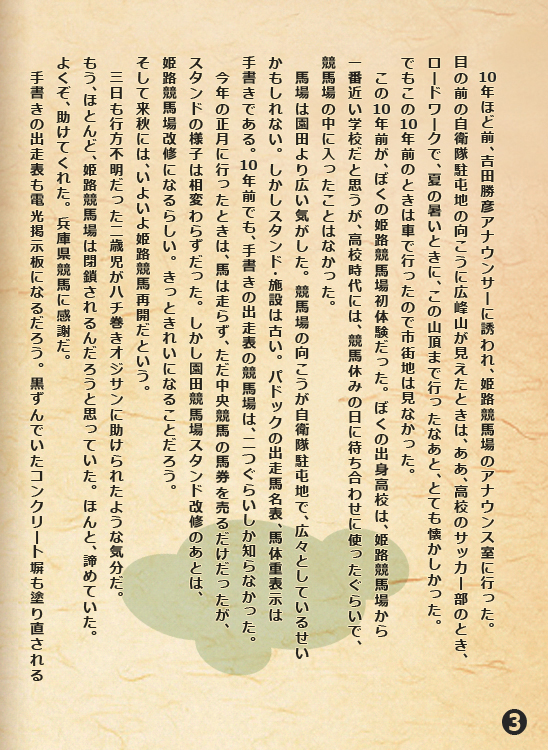 10年ほど前、吉田勝彦アナウンサーに誘われ、姫路競馬場のアナウンス室に行った。
目の前の自衛隊駐屯地の向こうに広峰山が見えたときは、ああ、高校のサッカー部のとき、
ロードワークで、夏の暑いときに、この山頂まで行ったなあと、とても懐かしかった。
でもこの10年前のときは車で行ったので市街地は見なかった。
この10年前が、ぼくの姫路競馬場初体験だった。ぼくの出身高校は、姫路競馬場から
一番近い学校だと思うが、高校時代には、競馬休みの日に待ち合わせに使ったぐらいで、
競馬場の中に入ったことはなかった。
馬場は園田より広い気がした。競馬場の向こうが自衛隊駐屯地で、広々としているせい
かもしれない。しかしスタンド・施設は古い。パドックの出走馬名表、馬体重表示は
手書きである。10年前でも、手書きの出走表の競馬場は、二つぐらいしか知らなかった。
今年の正月に行ったときは、馬は走らず、ただ中央競馬の馬券を売るだけだったが、
スタンドの様子は相変わらずだった。しかし園田競馬場スタンド改修のあとは、
姫路競馬場改修になるらしい。きっときれいになることだろう。
そして来秋には、いよいよ姫路競馬再開だという。
三日も行方不明だった二歳児がハチ巻きオジサンに助けられたような気分だ。
もう、ほとんど、姫路競馬場は閉鎖されるんだろうと思っていた。ほんと、諦めていた。
よくぞ、助けてくれた。兵庫県競馬に感謝だ。
手書きの出走表も電光掲示板になるだろう。黒ずんでいたコンクリート塀も塗り直される
3